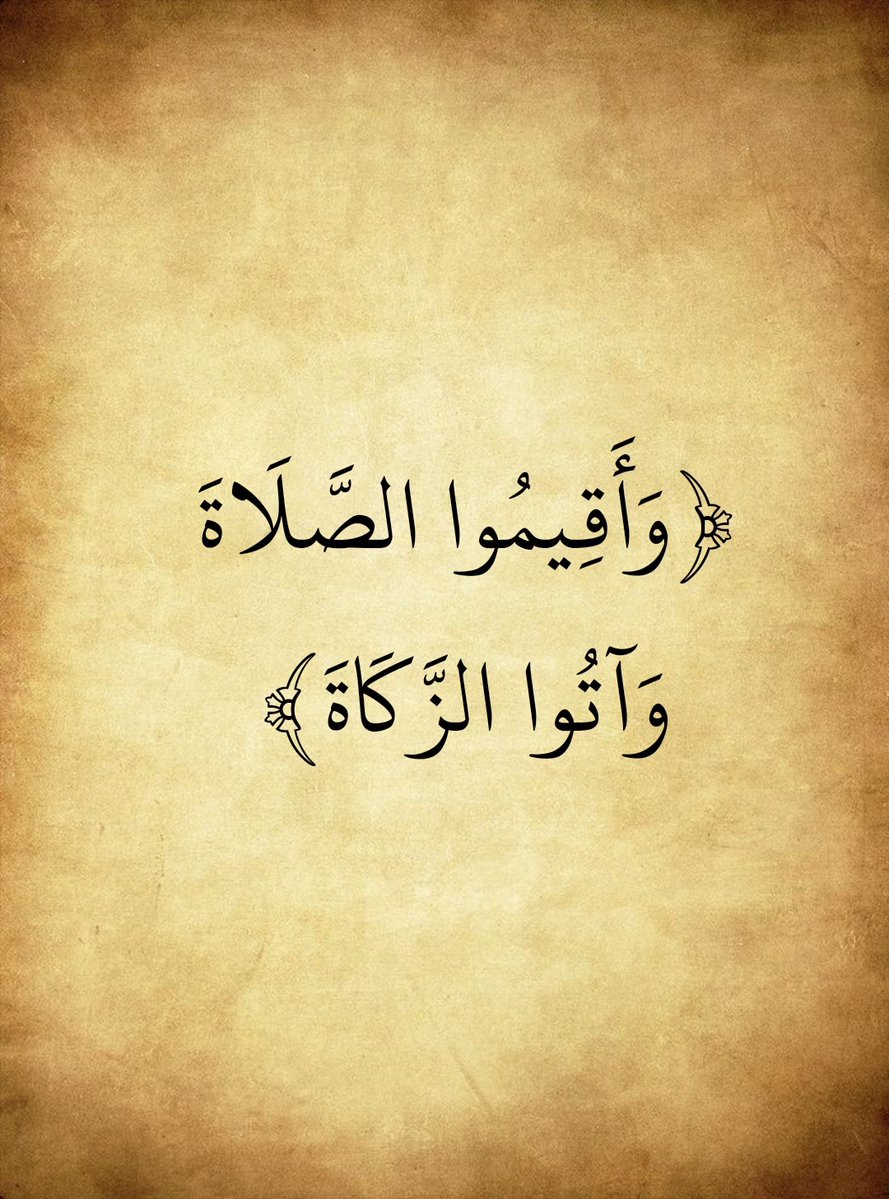 ﴿وَأَقِيمُوا الصَّلَاةَ
وَآتُوا الزَّكَاةَ﴾